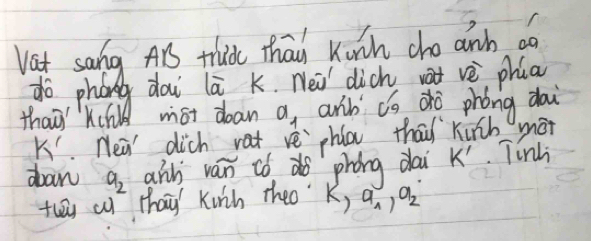 Vật sáng AB trước thấu kính cho ảnh có
độ phóng đại là K. Nếu dịch vật về phía
thấu kính một đoạn a₁ ảnh có độ phóng đại
K'. Nếu dịch vật về phía thấu kính một
đoạn a₂ ảnh vẫn có độ phóng đại K'. Tính
tiêu cự thấu kính theo K, a₁, a₂